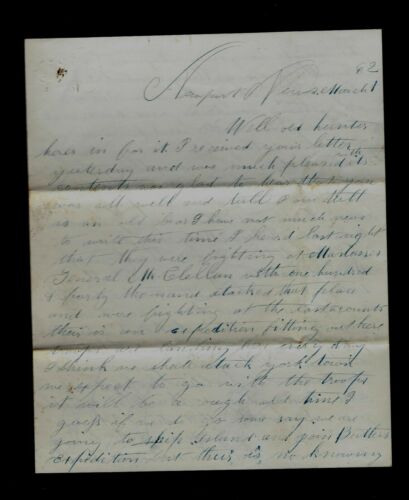 62
Newport News March 1
Well old hunter
heres in for it I received your letter
yesterday and was much pleased with its
contents was glad to hear that you
was all well and tell I am still
as an old I have not much news
to write this time I heard last night
that they were fighting at Manassas
General McClellan with one hundred
& forty thousand attacked that place
and were fighting at the last accounts
their is an expedition fitting out here
troops are landing here every day
I think we shall attack york town
we expect to go with the troops
it will be a rough old time I
guess if we do go some say we are
going to ship Island and join Butlers
expedition but their is no knowing